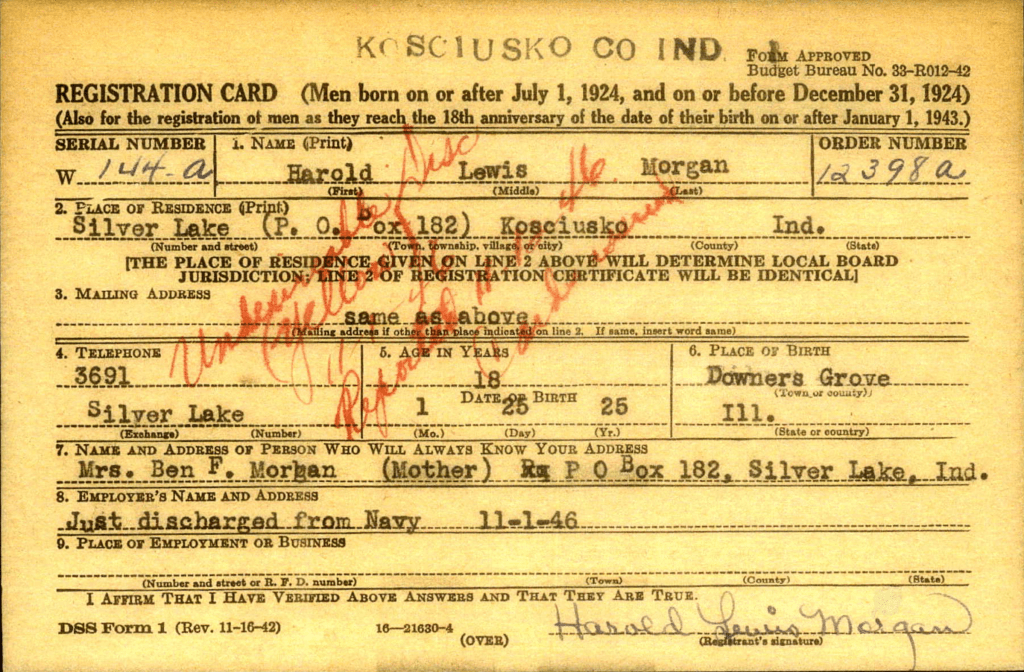 KOSCIUSKO CO IND.
FORM APPROVED
Budget Bureau No. 33-R012-42
REGISTRATION CARD (Men born on or after July 1, 1924, and on or before December 31, 1924)
(Also for the registration of men as they reach the 18th anniversary of the date of their birth on or after January 1, 1943.)
SERIAL NUMBER 1. NAME (Print) ORDER NUMBER
W 144-a Harold Lewis Morgan 12398a
(First) (Middle) (Last)
2. PLACE OF RESIDENCE (Print)
Silver Lake (P. O. Box 182) Kosciusko Ind.
(Number and street) (Town, township, village, or city) (County) (State)
[THE PLACE OF RESIDENCE GIVEN ON LINE 2 ABOVE WILL DETERMINE LOCAL BOARD
JURISDICTION; LINE 2 OF REGISTRATION CERTIFICATE WILL BE IDENTICAL]
3. MAILING ADDRESS
same as above
(Mailing address if other than place indicated on line 2. If same, insert word same)
Undesirable Disc
Yellow
Reported
4. TELEPHONE 5. AGE IN YEARS 6. PLACE OF BIRTH
3691 18 Downers Grove
DATE OF BIRTH (Town or county)
Silver Lake 1 25 25 Ill.
(Exchange) (Number) (Mo.) (Day) (Yr.) (State or country)
7. NAME AND ADDRESS OF PERSON WHO WILL ALWAYS KNOW YOUR ADDRESS
Mrs. Ben F. Morgan (Mother) P O Box 182, Silver Lake, Ind.
8. EMPLOYER'S NAME AND ADDRESS
Just discharged from Navy 11-1-46
9. PLACE OF EMPLOYMENT OR BUSINESS
(Number and street or R. F. D. number) (Town) (County) (State)
I AFFIRM THAT I HAVE VERIFIED ABOVE ANSWERS AND THAT THEY ARE TRUE.
DSS Form 1 (Rev. 11-16-42) 16—21630-4 (OVER) Harold Lewis Morgan
(Registrant's signature)